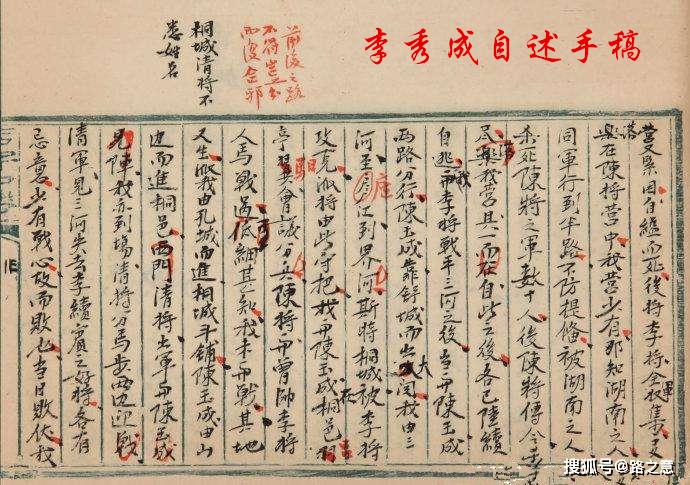 李秀成自述手稿
前後之路
不符
桐城清将不
悉姓名
因自縊而死後将李将全收集
與在陳将营中我营少有那知湖南之
同軍行到半路不防提備被湖南之人
杀死陳将之軍数十人後陳将傳令
尽與我营其一而在自此之後各已陸續
自逃我而李将戰平三河之後當而陳玉成
両路分行陳玉成靠舒城而出大関我由三
河至江到界河斯時桐城被李将
攻克派将由此守把我而陳玉成桐邑
亭翼會議分兵陳将而曾師李将
人馬戰過低細其知我未而戰其地
又生派我由孔城而進桐城斗铺陳玉成由山
边而進桐邑西門清将出軍而陳玉成
見陣我亦到場清将分馬步四边迎戰
清軍見三河失去李續賓之好将各有
忌意少有戰心故而敗也當日敗伏我
搜狐号@路之意